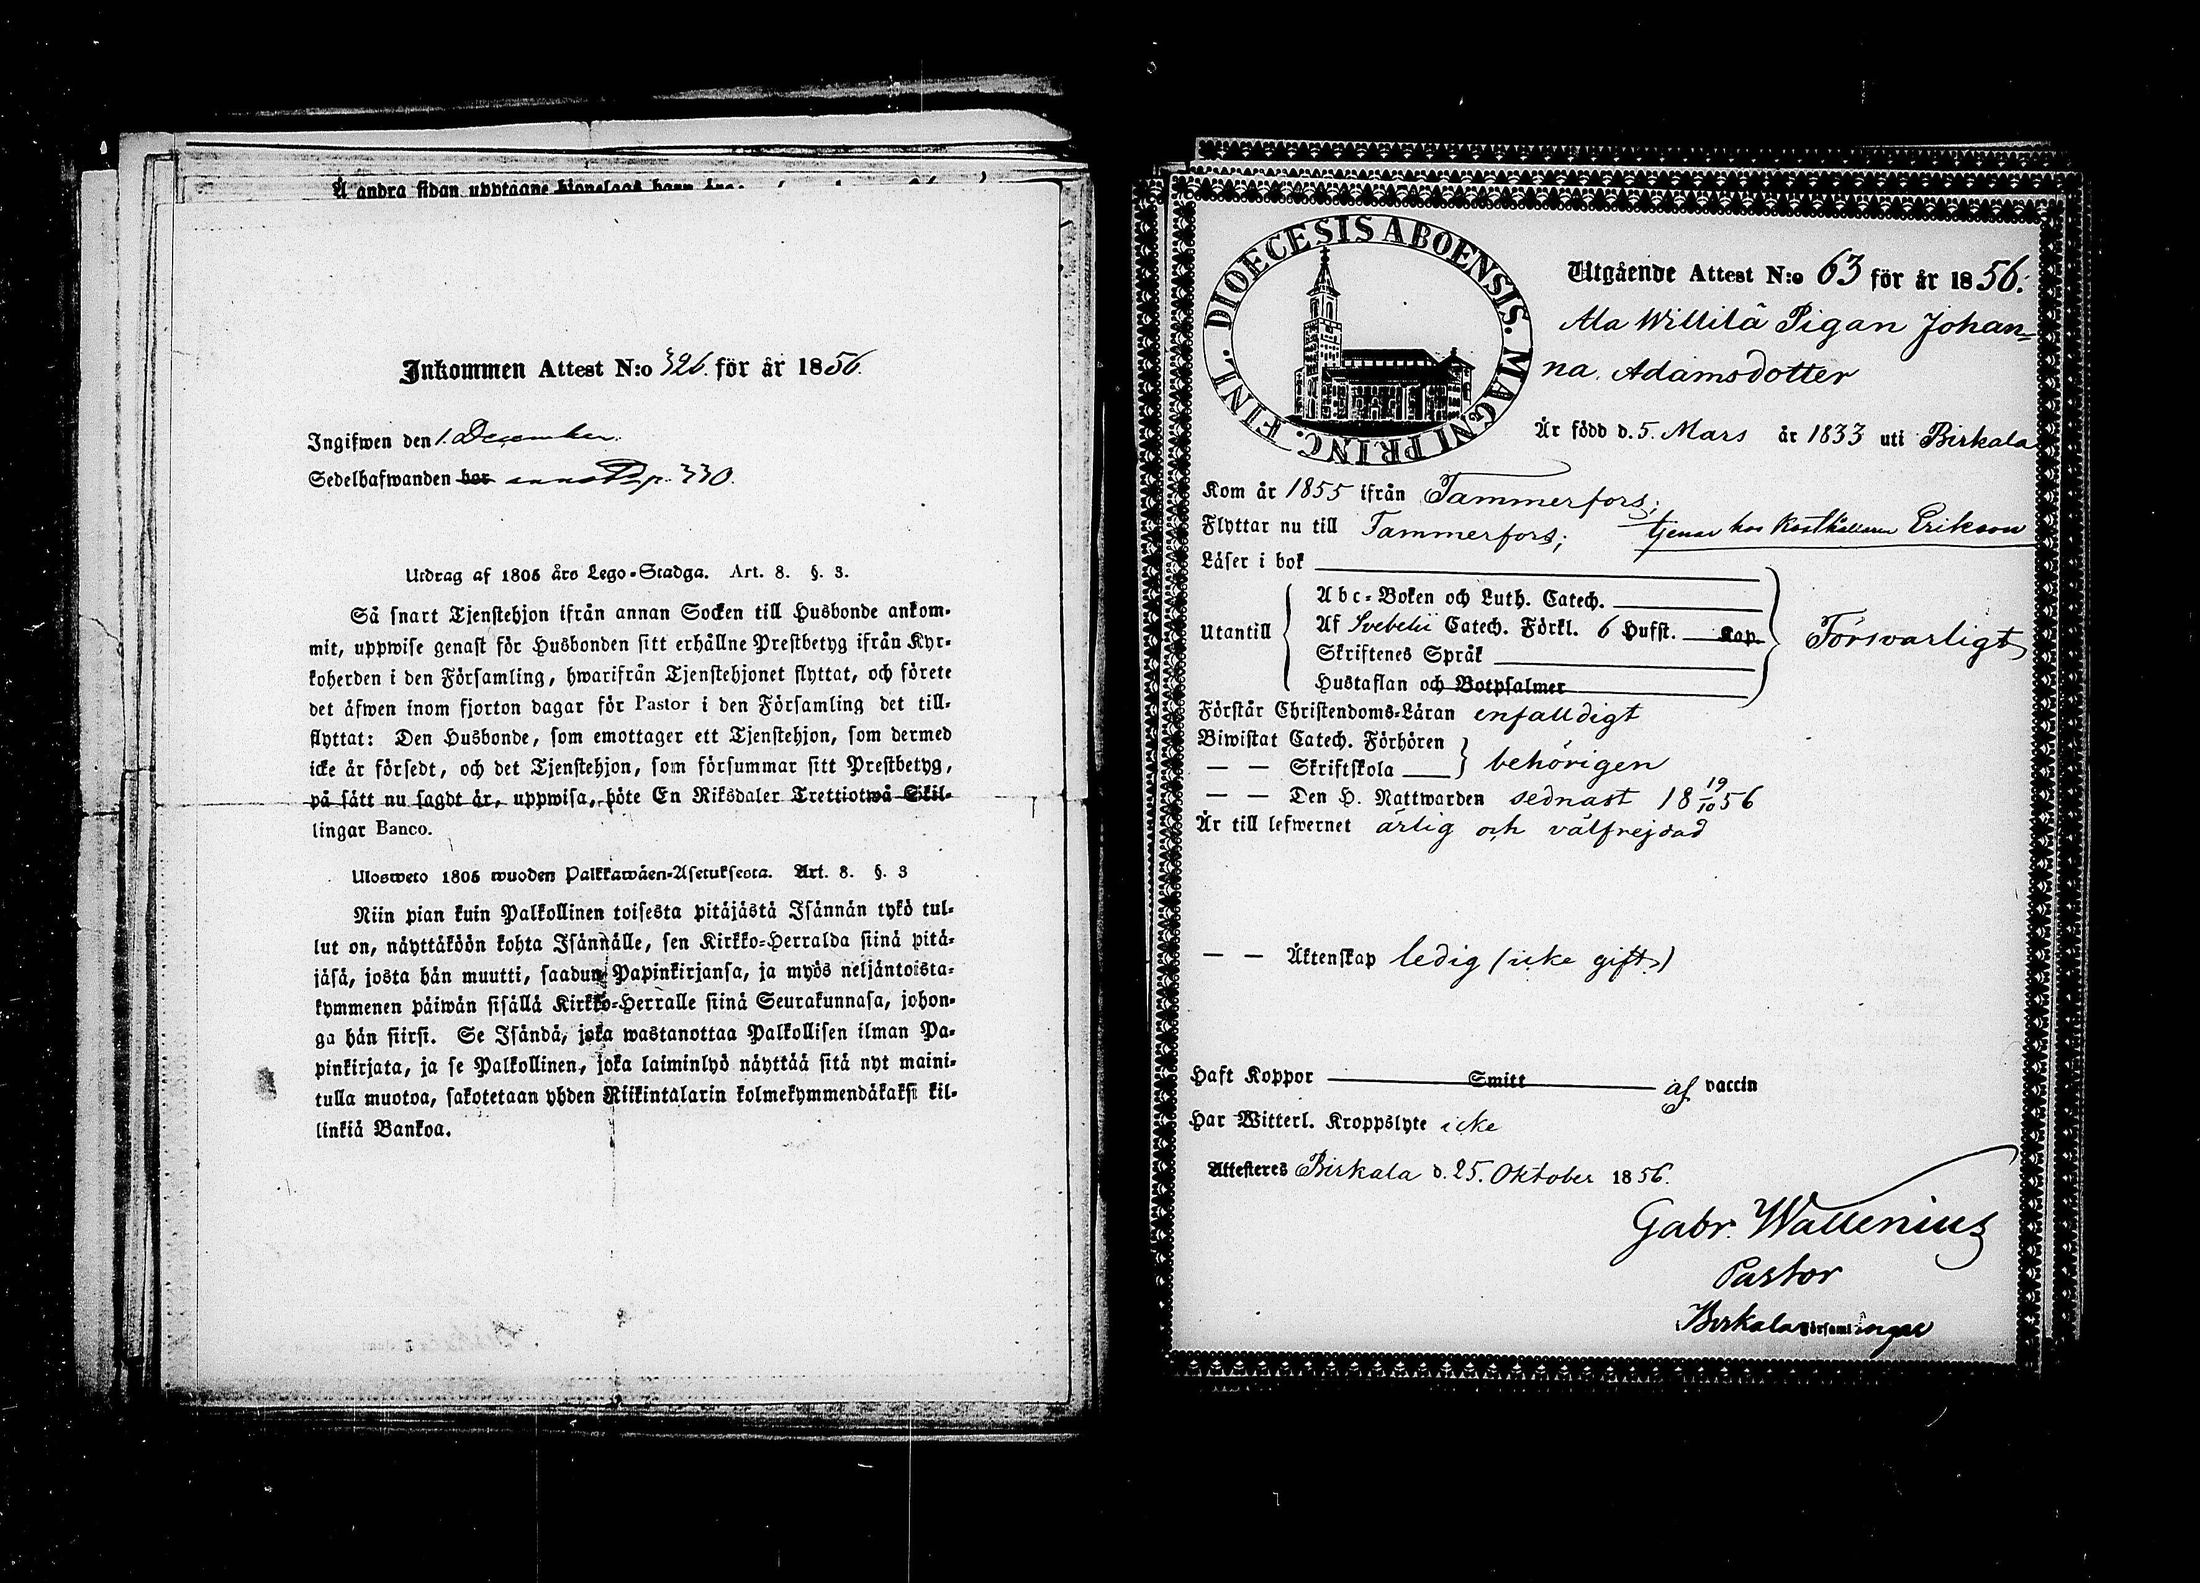 Å andra sidan upptages hjonelags barn
Inkommen Attest N:o 326. för år 1856.
Ingifwen den 1. December.
Sedelhafwanden bor p. 330.
Utdrag af 1805 års Lego-Stadga. Art. 8. §. 3.
Så snart Tjenstehjon ifrån annan Socken till Husbonde ankom-
mit, uppwise genast för Husbonden sitt erhållne Prestbetyg ifrån Kyr-
koherden i den Församling, hwarifrån Tjenstehjonet flyttat, och förete
det äfwen inom fjorton dagar för Pastor i den Församling det till-
flyttat: Den Husbonde, som emottager ett Tjenstehjon, som dermed
icke är försedt, och det Tjenstehjon, som försummar sitt Prestbetyg,
på sätt nu sagdt är, uppwisa, böte En Riksdaler Trettiotwå Skil-
lingar Banco.
Ulosweto 1805 wuoden Palkkawäen-Asetuksesta. Art. 8. §. 3
Niin pian kuin Palkollinen toisesta pitäjästä Isännän tykö tul-
lut on, näyttäköön kohta Isännälle, sen Kirkko-Herralda siinä pitä-
jäsä, josta hän muutti, saadun Papinkirjansa, ja myös neljäntoista-
kymmenen päiwän sisällä Kirkko-Herralle siinä Seurakunnasa, johon-
ga hän siirsi. Se Isändä, joka wastanottaa Palkollisen ilman Pa-
pinkirjata, ja se Palkollinen, joka laiminlyö näyttää sitä nyt maini-
tulla muotoa, sakotetaan yhden Riikintalarin kolmekymmendäkaksi kil-
linkiä Bankoa.
DIOECESIS ABOENSIS. MAGNI PRINC. FINL.
Utgående Attest N:o 63 för år 1856.
Ala Willilä Pigan Johan-
na Adamsdotter
Är född d. 5. Mars år 1833 uti Birkala
Kom år 1855 ifrån Tammerfors;
Flyttar nu till Tammerfors; tjenar hos Kosthållaren Erikson
Läser i bok
Utantill
Abc-Boken och Luth. Catech.
Af Svebelii Catech. Förkl. 6 Hufst. Kap.
Skriftenes Språk
Hustaflan och Botpsalmer
Försvarligt
Förstår Christendoms-Läran enfalldigt
Biwistat Catech. Förhören
— — Skriftskola
behörigen
— — Den H. Nattwarden sednast 18 19/10 56
Är till lefwernet ärlig och välfrejdad
— — Äktenskap ledig (icke gift)
Haft Koppor Smitt af vaccin
Har Witterl. Kroppslyte icke
Attesteres Birkala d. 25. Oktober 1856.
Gabr. Wallenius
Pastor
Birkala församlingar